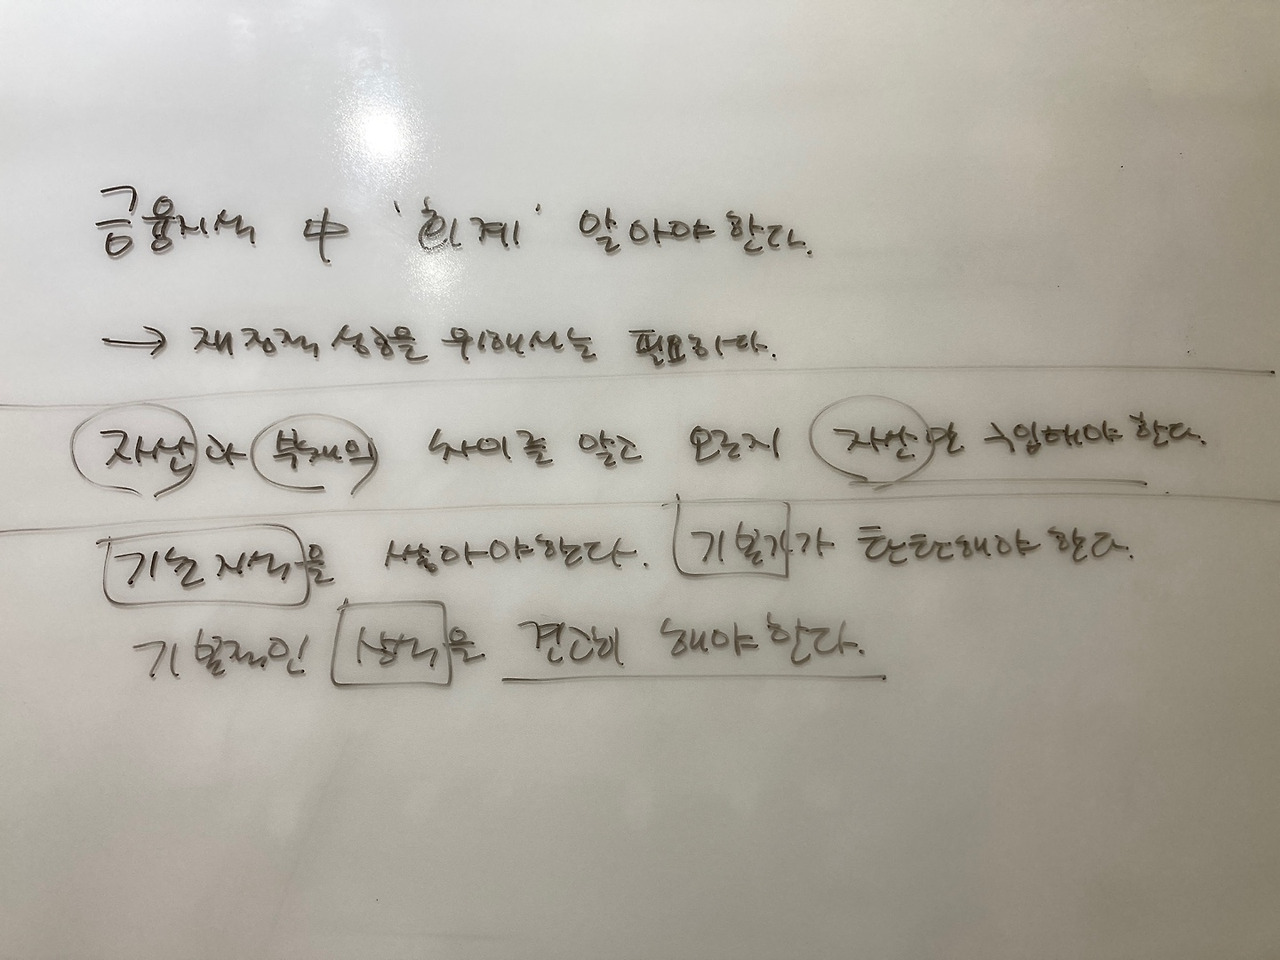 금융지식 中 '회계' 알아야한다.
→ 재정적 성공을 위해서는 필요하다.
자산과 부채의 차이를 알고 오로지 자산만 구입해야한다.
기초지식을 쌓아야한다. 기본기가 탄탄해야한다.
기본적인 상식을 견고히 해야한다.